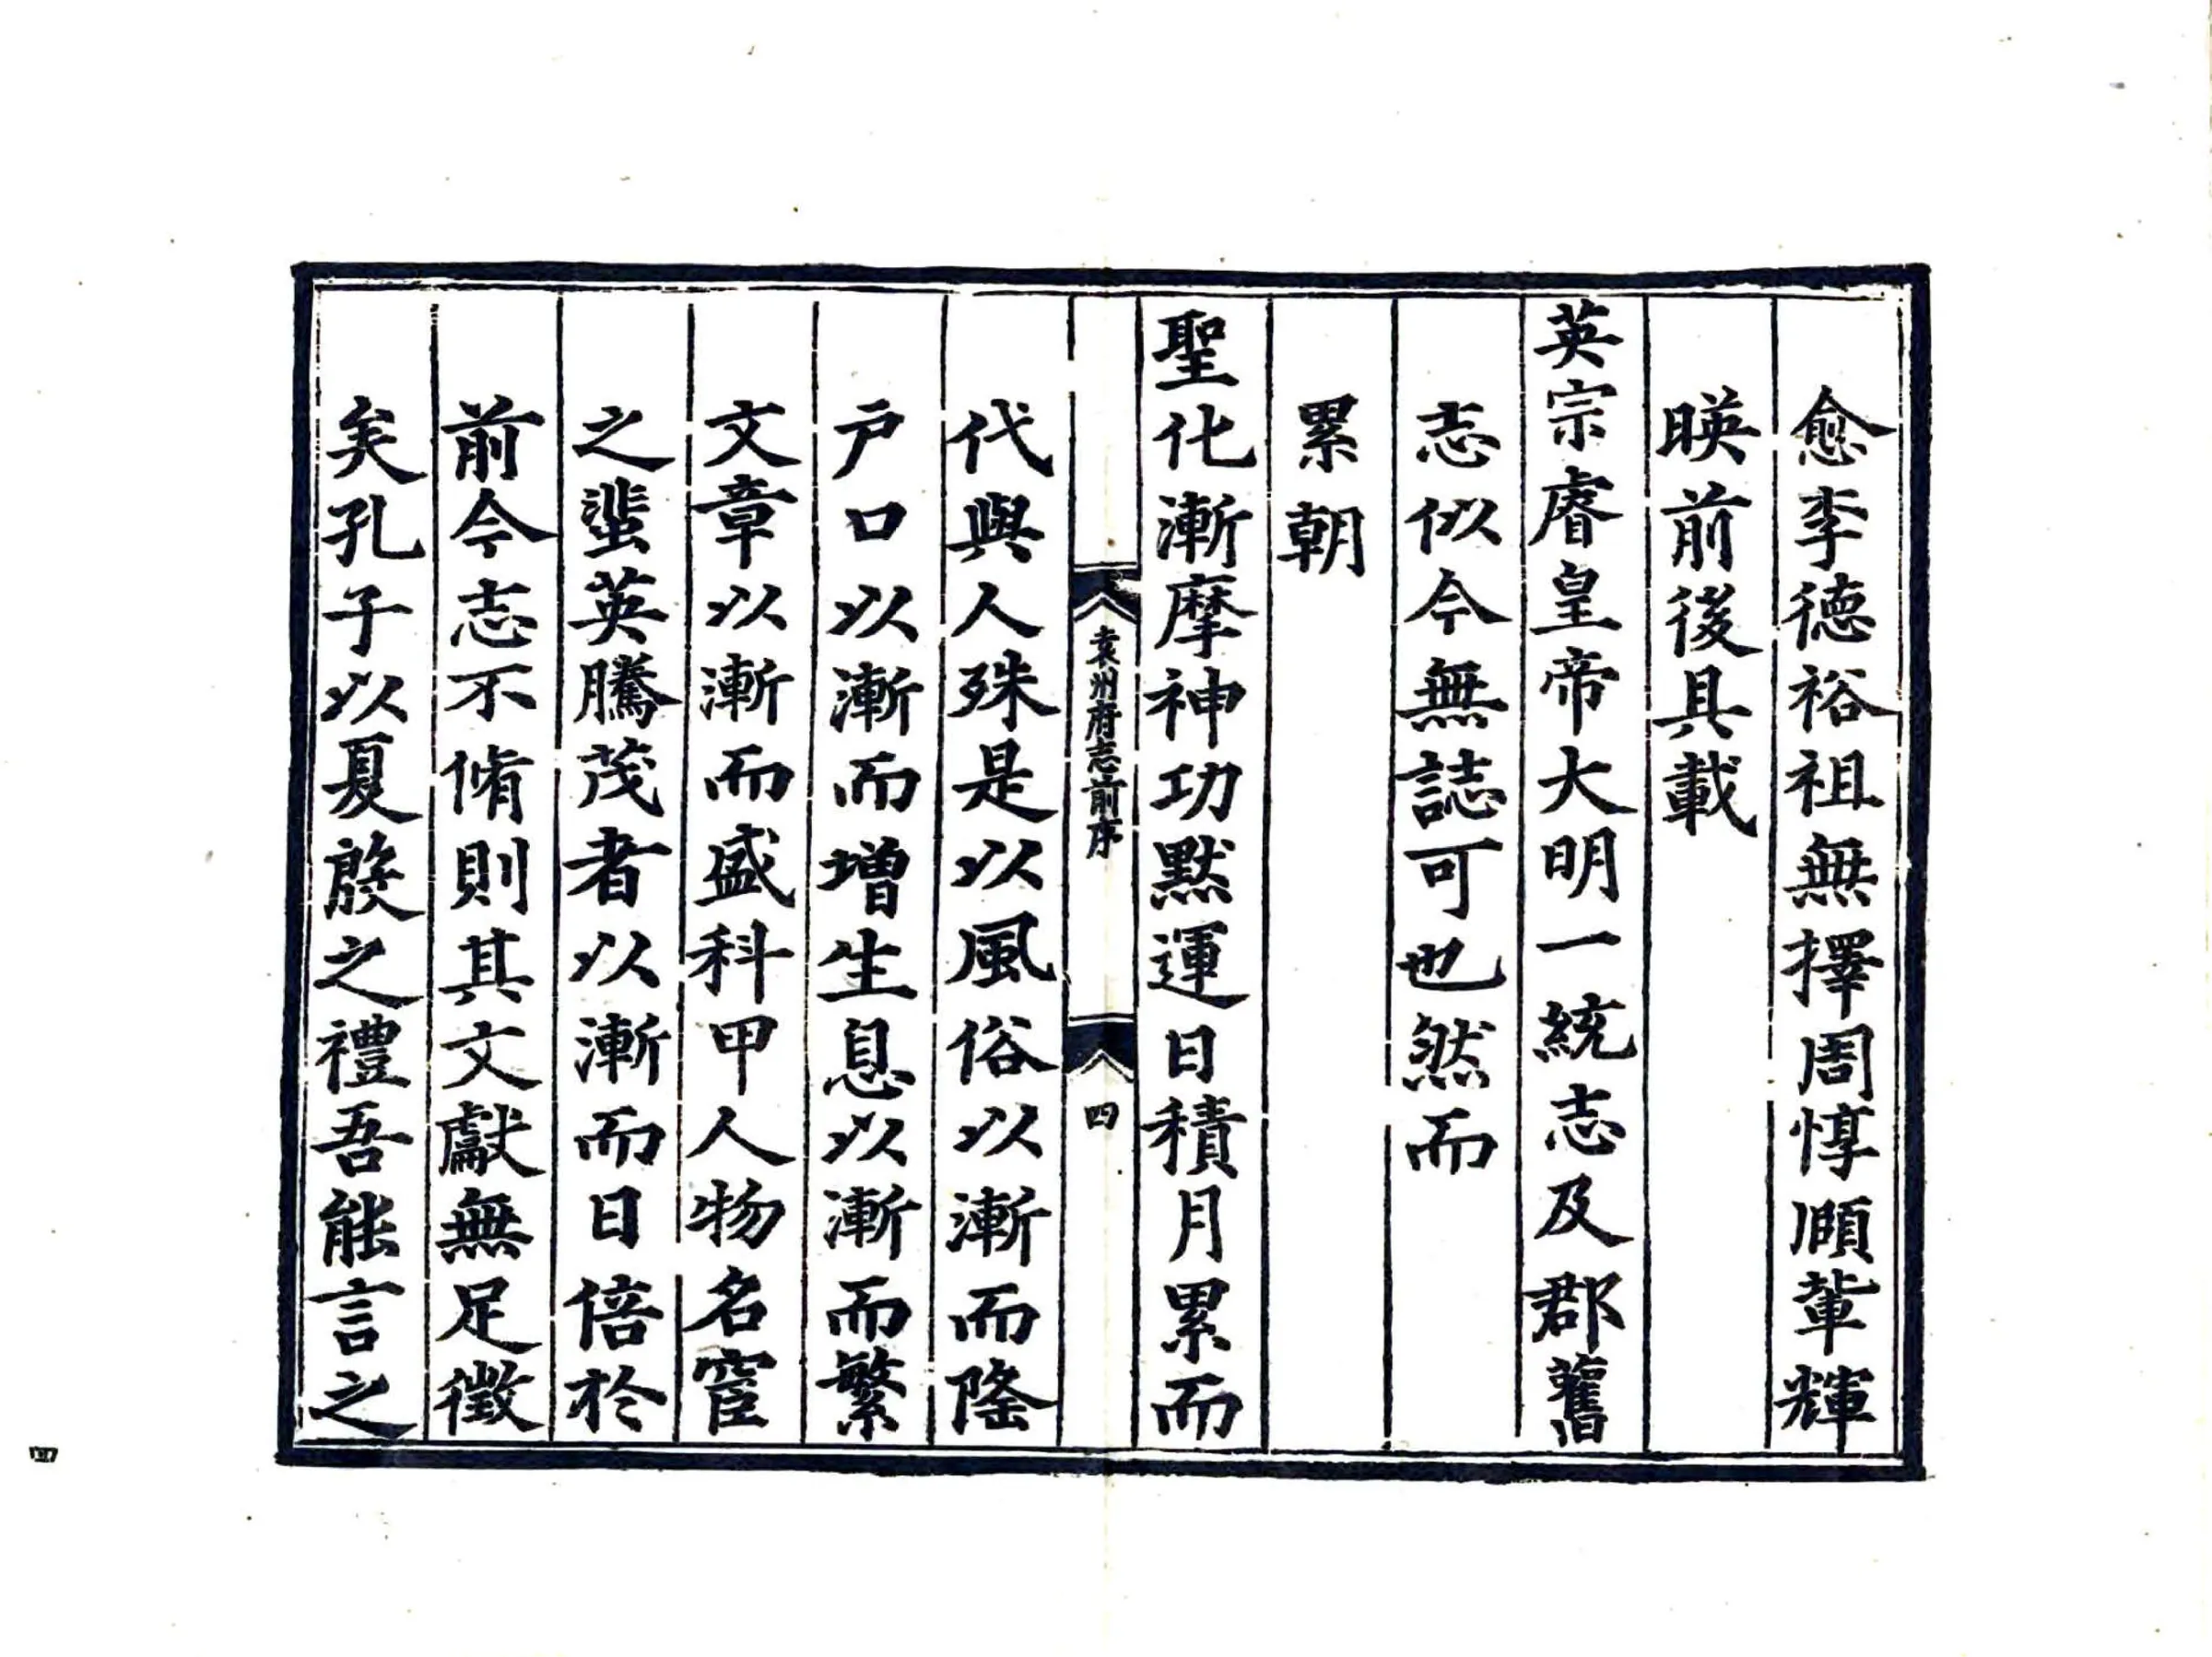 愈李德裕祖無擇周惇頥軰輝
暎前後具載
英宗睿皇帝大明一統志及郡舊
志似今無誌可也然而
累朝
聖化漸摩神功默運日積月累而
袁州府志前序
四
代與人殊是以風俗以漸而隆
戶口以漸而增生息以漸而繁
文章以漸而盛科甲人物名宦
之蜚英騰茂者以漸而日倍於
前今志不脩則其文獻無足徵
矣孔子以夏殷之禮吾能言之
四